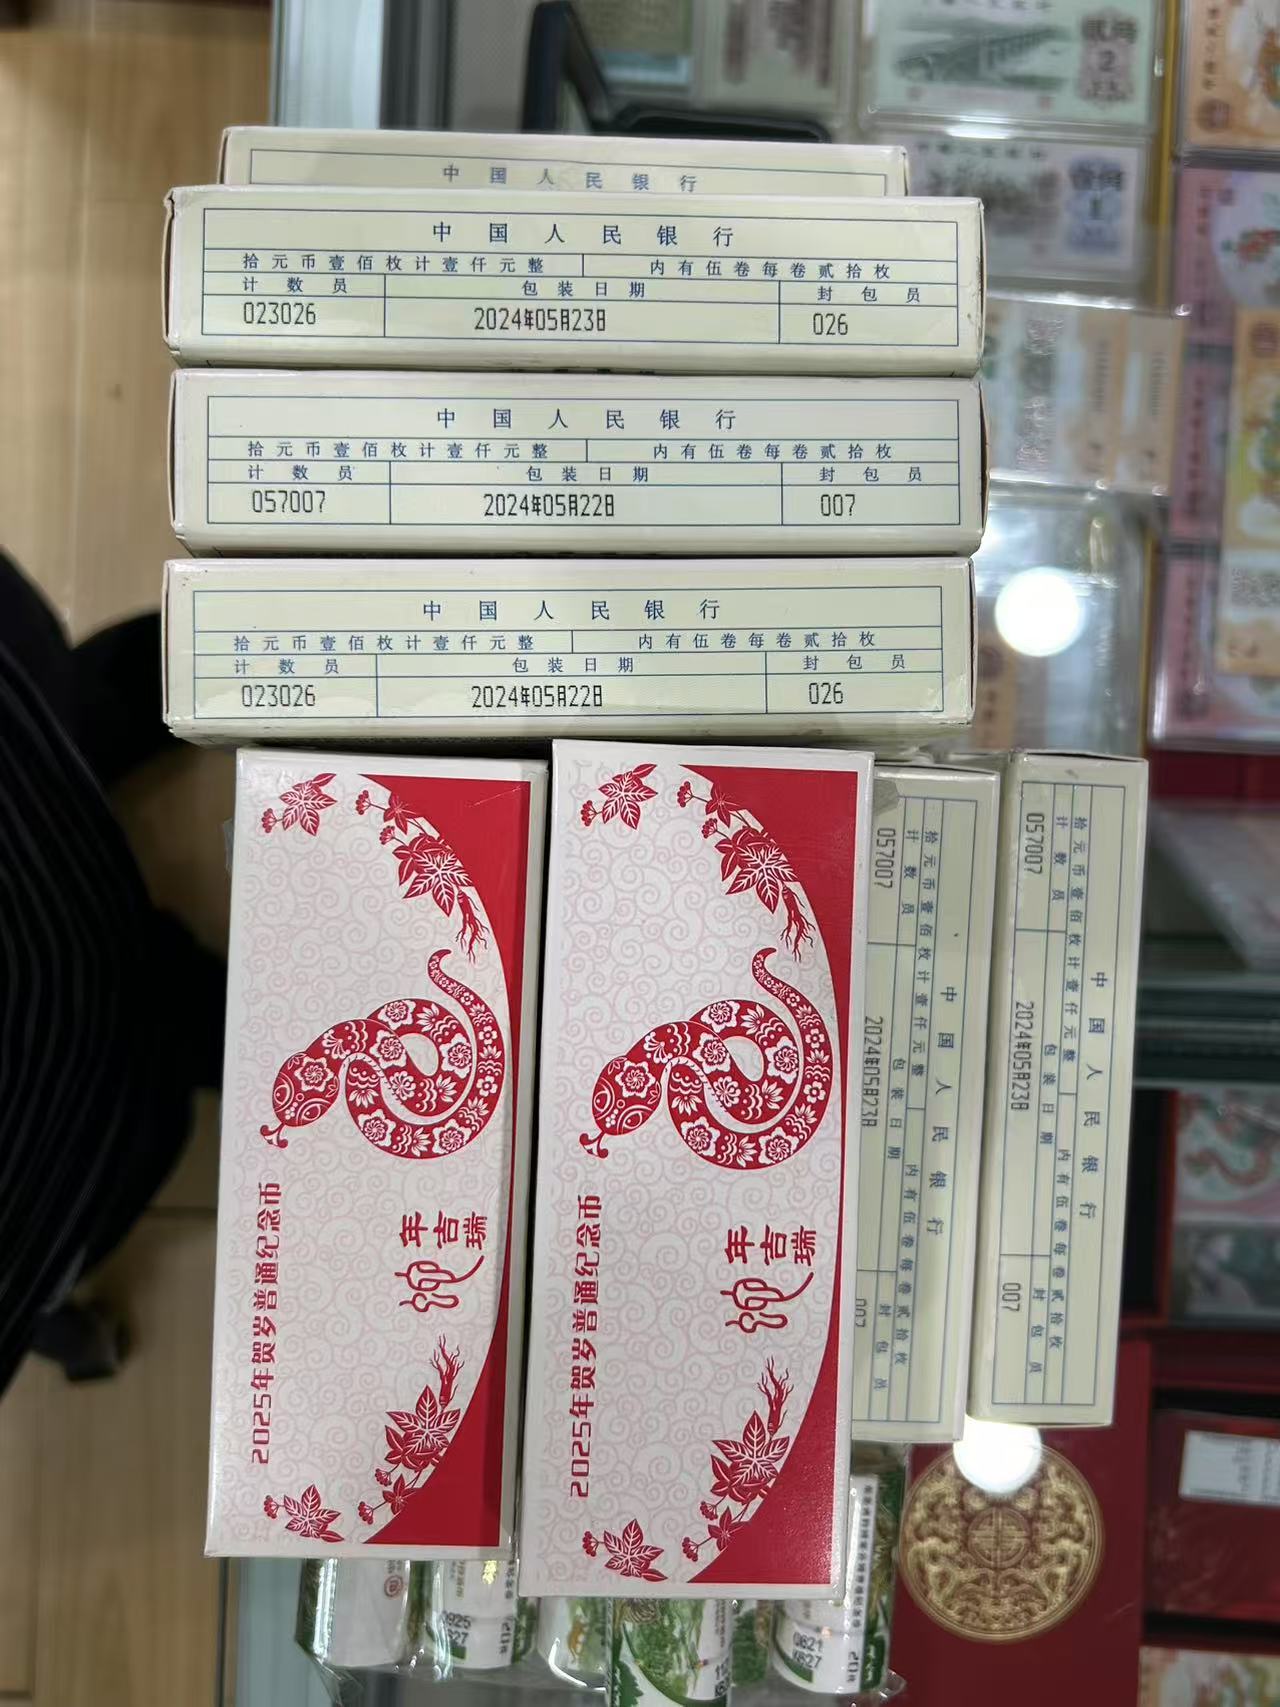 中国人民银行
中国人民银行
拾元币壹佰枚计壹仟元整 内有伍卷每卷贰拾枚
计数员 包装日期 封包员
023026 2024年05月23日 026
中国人民银行
拾元币壹佰枚计壹仟元整 内有伍卷每卷贰拾枚
计数员 包装日期 封包员
057007 2024年05月22日 007
中国人民银行
拾元币壹佰枚计壹仟元整 内有伍卷每卷贰拾枚
计数员 包装日期 封包员
023026 2024年05月22日 026
2025年贺岁普通纪念币
蛇年吉瑞
2025年贺岁普通纪念币
蛇年吉瑞
中国人民银行
拾元币壹佰枚计壹仟元整 内有伍卷每卷贰拾枚
计数员 包装日期 封包员
057007 2024年05月23日 007
中国人民银行
拾元币壹佰枚计壹仟元整 内有伍卷每卷贰拾枚
计数员 包装日期 封包员
057007 2024年05月23日 007
贰角
2
0621
K627
20枚